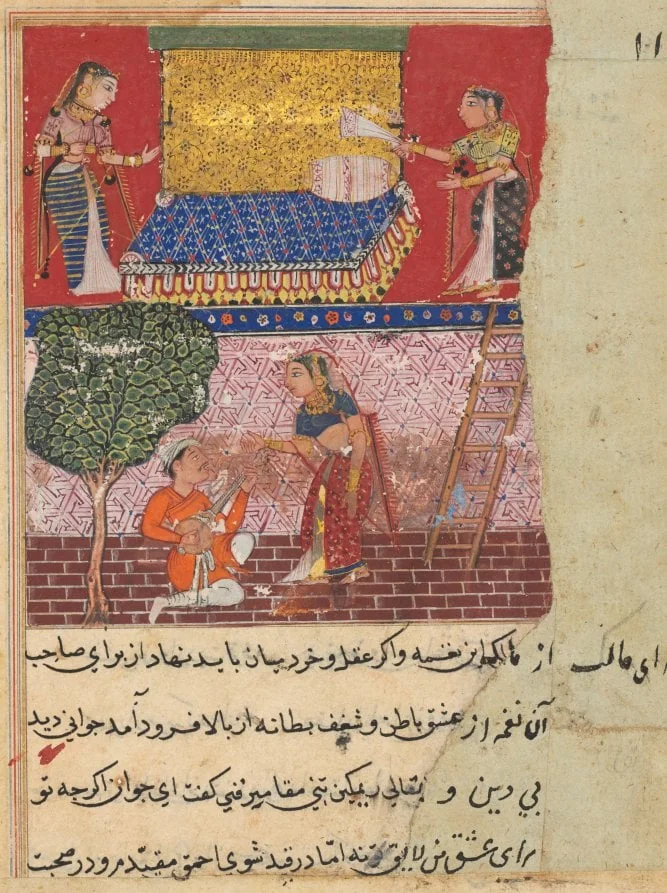 ١١
از مالک این نغمه واکر عقل و خرد بیان باید نهاد از برای صاحب
آن نغمه از عشق باطن و شغف بطانه از بالا فرود آمد جوانی دید
بی دین و بقالی ریمکین تنی مقامیر فنی کفت ای جوان اکرجه تو
برای عشق من لایق نه اما در قید شوی احمق مقیدم و در صحبت